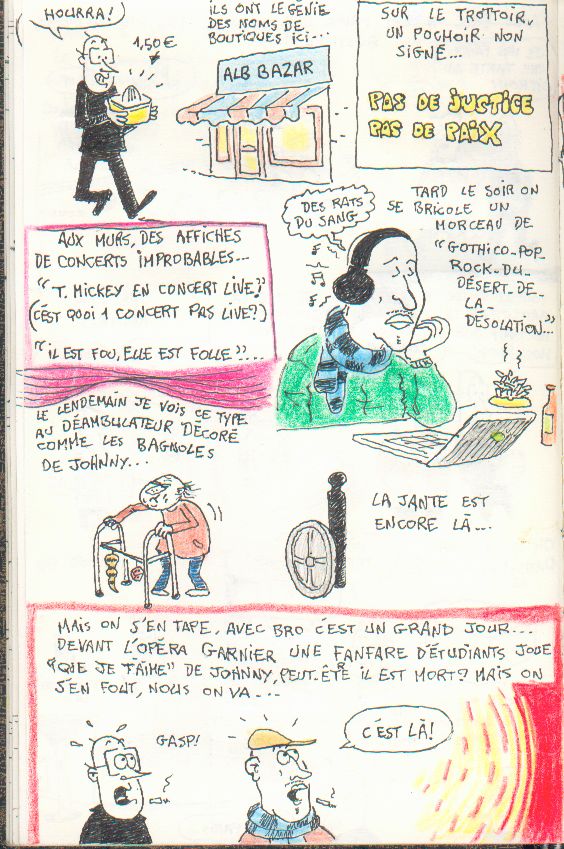 HOURRA!
1,50€
ILS ONT LE GÉNIE
DES NOMS DE
BOUTIQUES ICI...
ALB BAZAR
SUR LE TROTTOIR,
UN POCHOIR NON
SIGNÉ...
PAS DE JUSTICE
PAS DE PAIX
AUX MURS, DES AFFICHES
DE CONCERTS IMPROBABLES...
"T. MICKEY EN CONCERT LIVE"
(C'EST QUOI 1 CONCERT PAS LIVE?)
"IL EST FOU, ELLE EST FOLLE"...
TARD LE SOIR ON
SE BRICOLE UN
MORCEAU DE
"GOTHICO-POP
ROCK-DU-
DÉSERT-DE-
LA-
DÉSOLATION..."
DES RATS
DU SANG
LE LENDEMAIN JE VOIS CE TYPE
AU DÉAMBULATEUR DÉCORÉ
COMME LES BAGNOLES
DE JOHNNY...
LA JANTE EST
ENCORE LÀ...
MAIS ON S'EN TAPE, AVEC BRO C'EST UN GRAND JOUR...
DEVANT L'OPÉRA GARNIER UNE FANFARE D'ÉTUDIANTS JOUE
"QUE JE T'AIME" DE JOHNNY, PEUT-ÊTRE IL EST MORT? MAIS ON
S'EN FOUT, NOUS ON VA...
GASP!
C'EST LÀ!